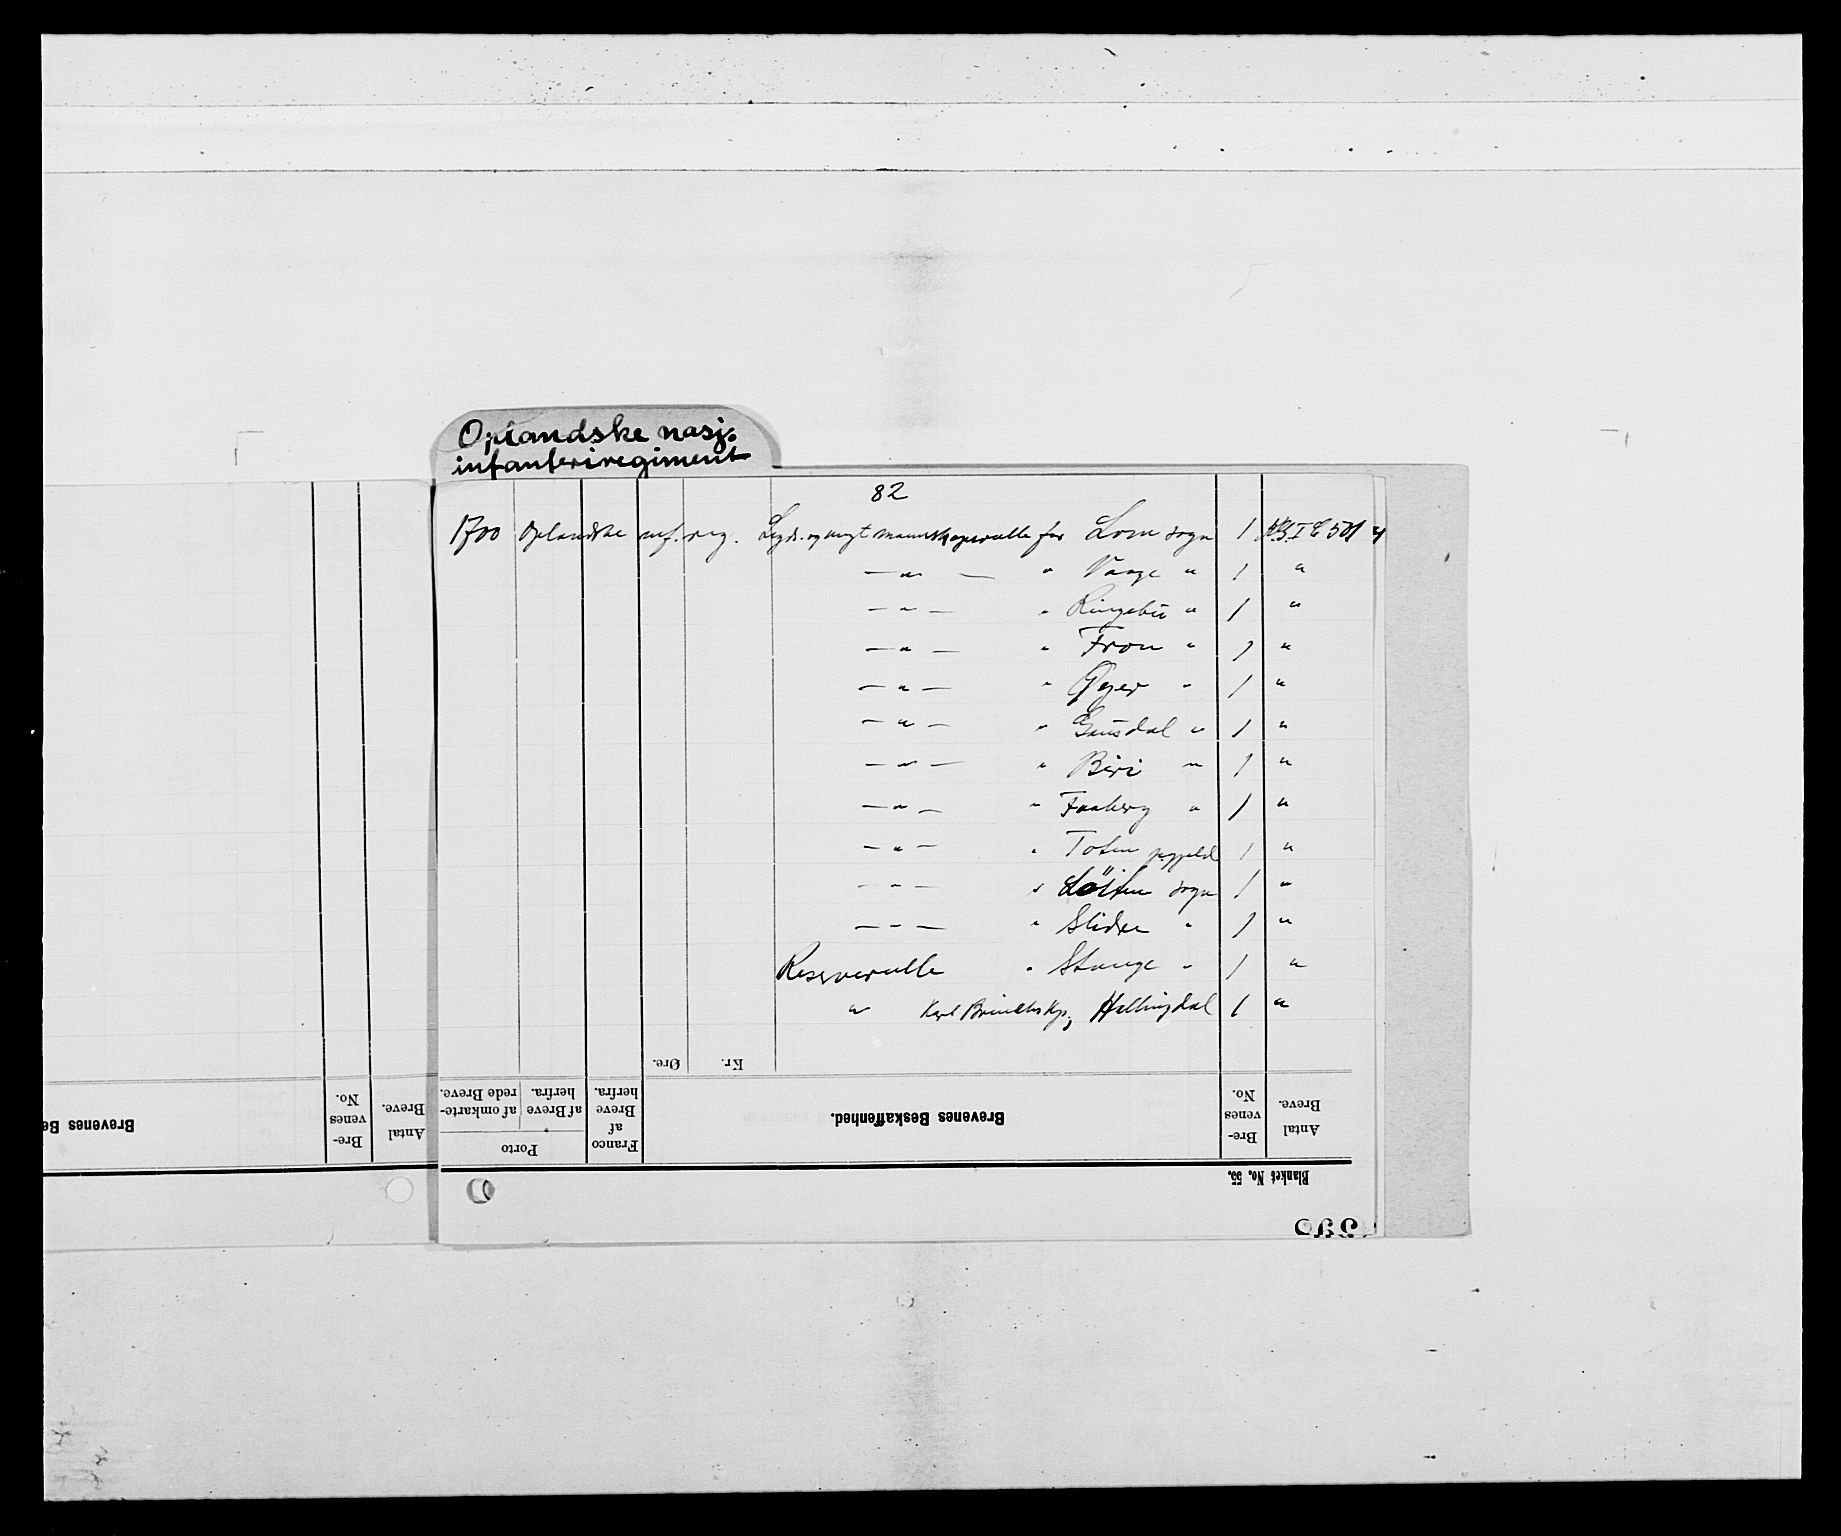 Oplandske nasj.
infanteriregiment
82
1700 Oplandske inf. reg. Legds- og nygt mannskapsrulle for Lom sogn 1
— " — " Vaage " 1 "
— " — " Ringebu " 1 "
— " — " Fron " 1 "
— " — " Øyer " 1 "
— " — " Gausdal " 1 "
— " — " Biri " 1 "
— " — " Faaberg " 1 "
— " — " Toten 1 "
— " — " Löiten sogn 1 "
— " — " Slidre " 1 "
Reserverulle " Stange " 1 "
" Hallingdal 1 "
Øre. Kr.
Porto
af omkarte-
rede Breve.
af Breve
herfra.
Franco
af
Breve
herfra.
Brevenes Beskaffenhed.
Bre-
venes
No.
Antal
Breve.
Blanket No. 55.
Brevenes Be
Bre-
venes
No.
Antal
Breve.